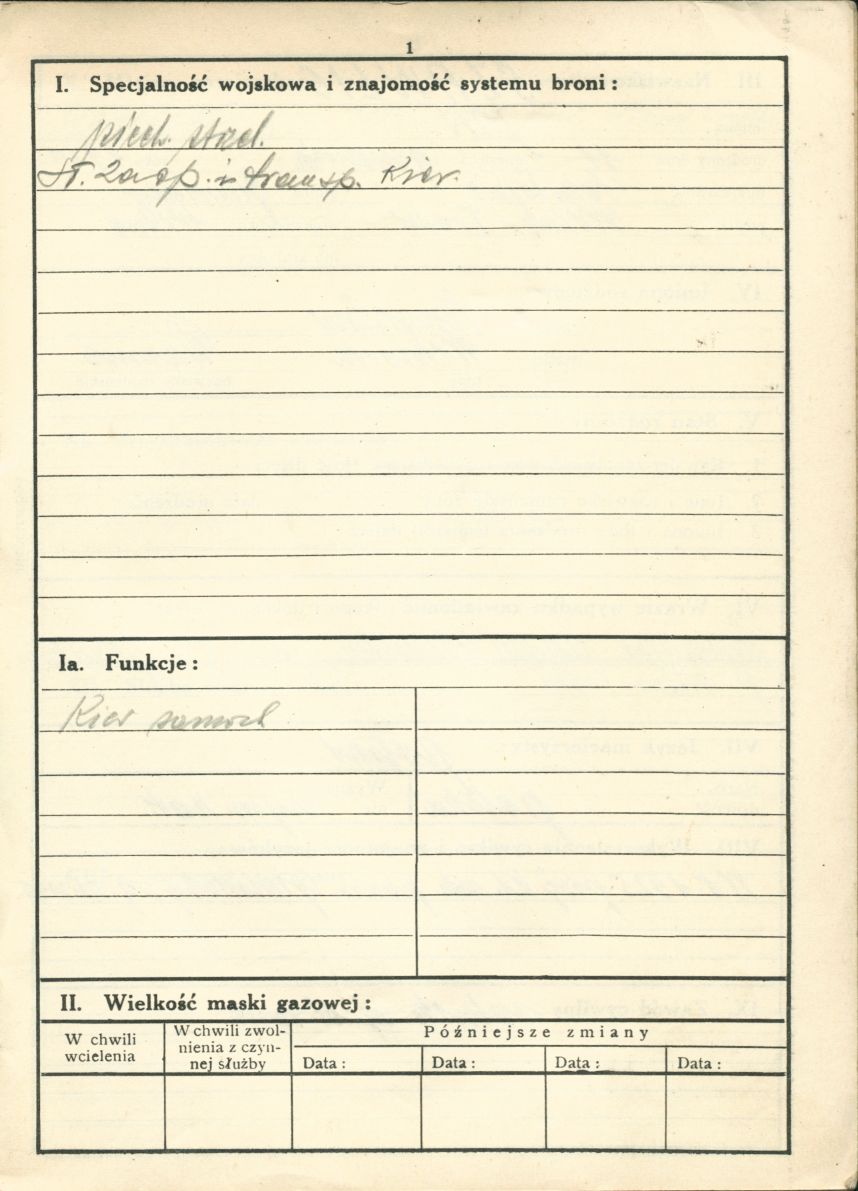 1
I. Specjalność wojskowa i znajomość systemu broni :
piech.
i transp. Kier.
Ia. Funkcje :
Kier samoch
II. Wielkość maski gazowej :
W chwili
wcielenia
W chwili zwol-
nienia z czyn-
nej służby
Późniejsze zmiany
Data :
Data :
Data :
Data :